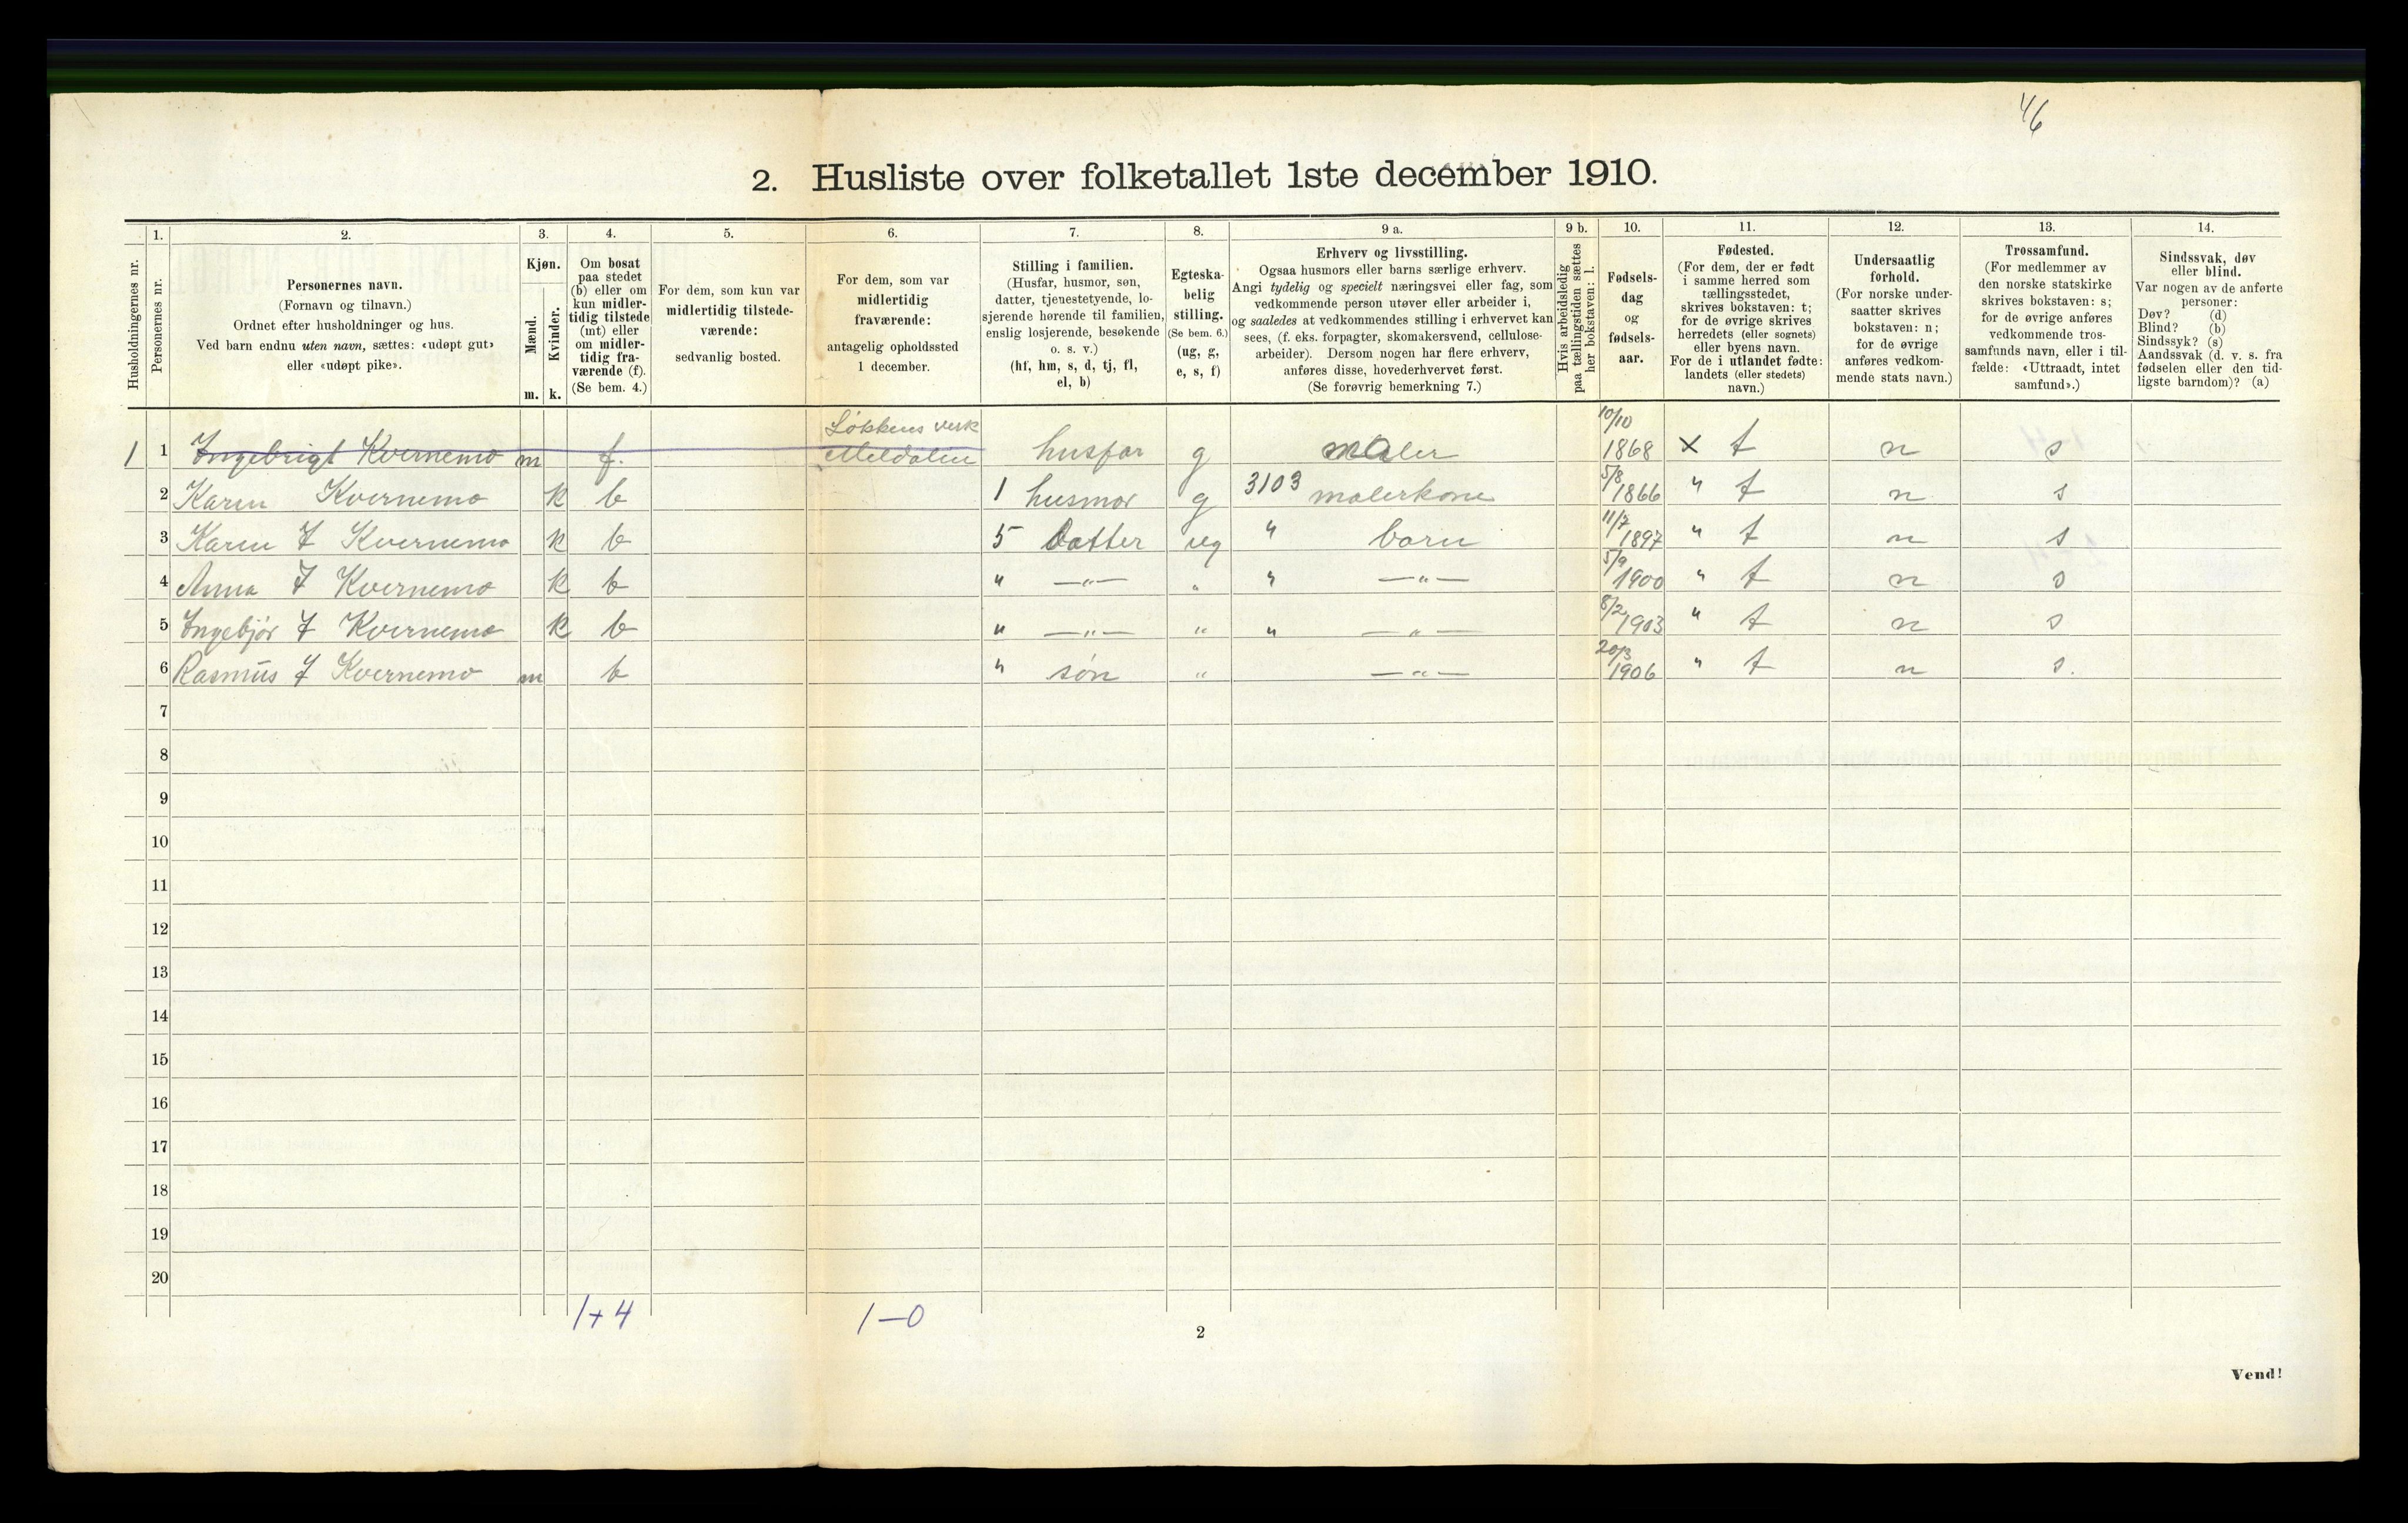 46
2. Husliste over folketallet 1ste december 1910.
Husholdningernes nr.
1.
Personernes nr.
2.
Personernes navn.
(Fornavn og tilnavn.)
Ordnet efter husholdninger og hus.
Ved barn endnu uten navn, sættes: «udøpt gut»
eller «udøpt pike».
3.
Kjøn.
Mænd.
Kvinder.
m. k.
4.
Om bosat
paa stedet
(b) eller om
kun midler-
tidig tilstede
(mt) eller
om midler-
tidig fra-
værende (f).
(Se bem. 4.)
5.
For dem, som kun var
midlertidig tilstede-
værende:
sedvanlig bosted.
6.
For dem, som var
midlertidig
fraværende:
antagelig opholdssted
1 december.
7.
Stilling i familien.
(Husfar, husmor, søn,
datter, tjenestetyende, lo-
sjerende hørende til familien,
enslig losjerende, besøkende
o. s. v.)
(hf, hm, s, d, tj, fl,
el, b)
8.
Egteska-
belig
stilling.
(Se bem. 6.)
(ug, g,
e, s, f)
9 a.
Erhverv og livsstilling.
Ogsaa husmors eller barns særlige erhverv.
Angi tydelig og specielt næringsvei eller fag, som
vedkommende person utøver eller arbeider i,
og saaledes at vedkommendes stilling i erhvervet kan
sees, (f. eks. forpagter, skomakersvend, cellulose-
arbeider). Dersom nogen har flere erhverv,
anføres disse, hovederhvervet først.
(Se forøvrig bemerkning 7.)
9 b.
Hvis arbeidsledig
paa tællingstiden sættes
her bokstaven: l.
10.
Fødsels-
dag
og
fødsels-
aar.
11.
Fødested.
(For dem, der er født
i samme herred som
tællingsstedet,
skrives bokstaven: t;
for de øvrige skrives
herredets (eller sognets)
eller byens navn.
For de i utlandet fødte:
landets (eller stedets)
navn.)
12.
Undersaatlig
forhold.
(For norske under-
saatter skrives
bokstaven: n;
for de øvrige
anføres vedkom-
mende stats navn.)
13.
Trossamfund.
(For medlemmer av
den norske statskirke
skrives bokstaven: s;
for de øvrige anføres
vedkommende tros-
samfunds navn, eller i til-
fælde: «Uttraadt, intet
samfund».)
14.
Sindssvak, døv
eller blind.
Var nogen av de anførte
personer:
Døv? (d)
Blind? (b)
Sindssyk? (s)
Aandssvak (d. v. s. fra
fødselen eller den tid-
ligste barndom)? (a)
1 1 Ingebrigt Kvernemo m f. Løkkens verk Meldalen husfar g maler 10/10 1868 x t n s
2 Karen Kvernemo k b 1 husmor g 3103 malerkone 5/8 1866 " t n s
3 Karen I Kvernemo k b 5 Datter ug " barn 11/7 1897 " t n s
4 Anna I Kvernemo k b " —"— " " —"— 5/9 1900 " t n s
5 Ingebjør I Kvernemo k b " —"— " " —"— 8/2 1903 " t n s
6 Rasmus I Kvernemo m b " søn " —"— 20/3 1906 " t n s.
7
8
9
10
11
12
13
14
15
16
17
18
19
20
1+4 1–0
2
Vend!